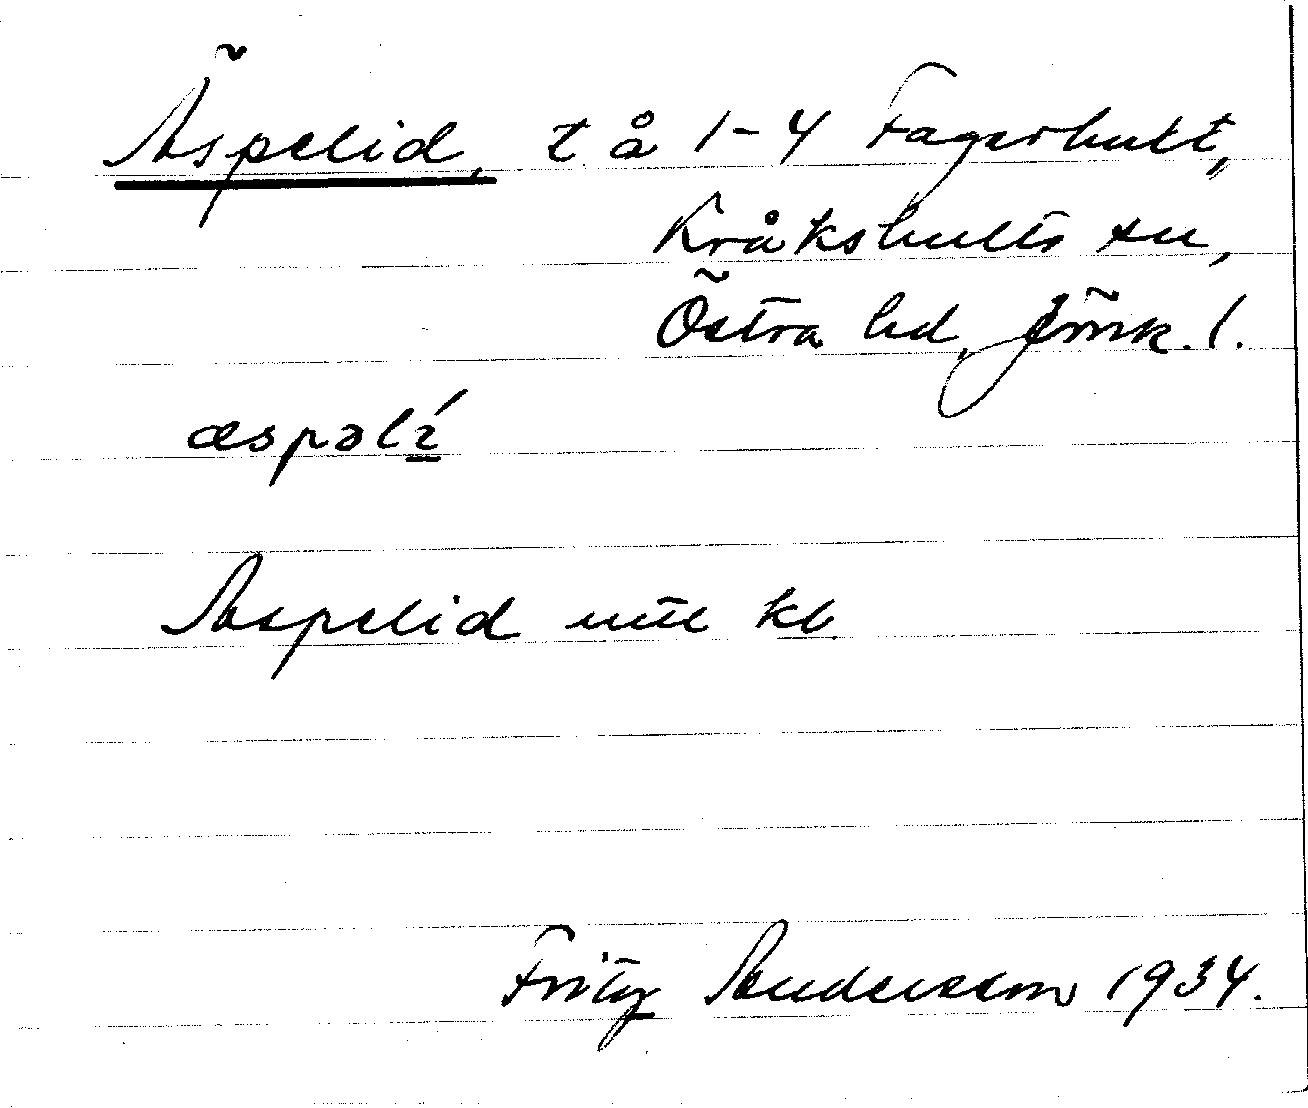 Äspelid, t å 1-4 Fagerhult,
Kråkshults sn,
Östra hd, Jönk. l.
æspəlí
Aspelid utt kb
Fritz Andersson 1934.